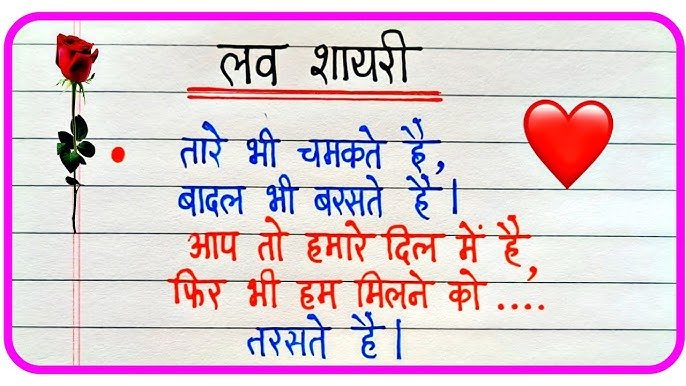 लव शायरी
तारे भी चमकते है,
बादल भी बरसते हैं।
आप तो हमारे दिल में है,
फिर भी हम मिलने को ....
तरसते हैं।